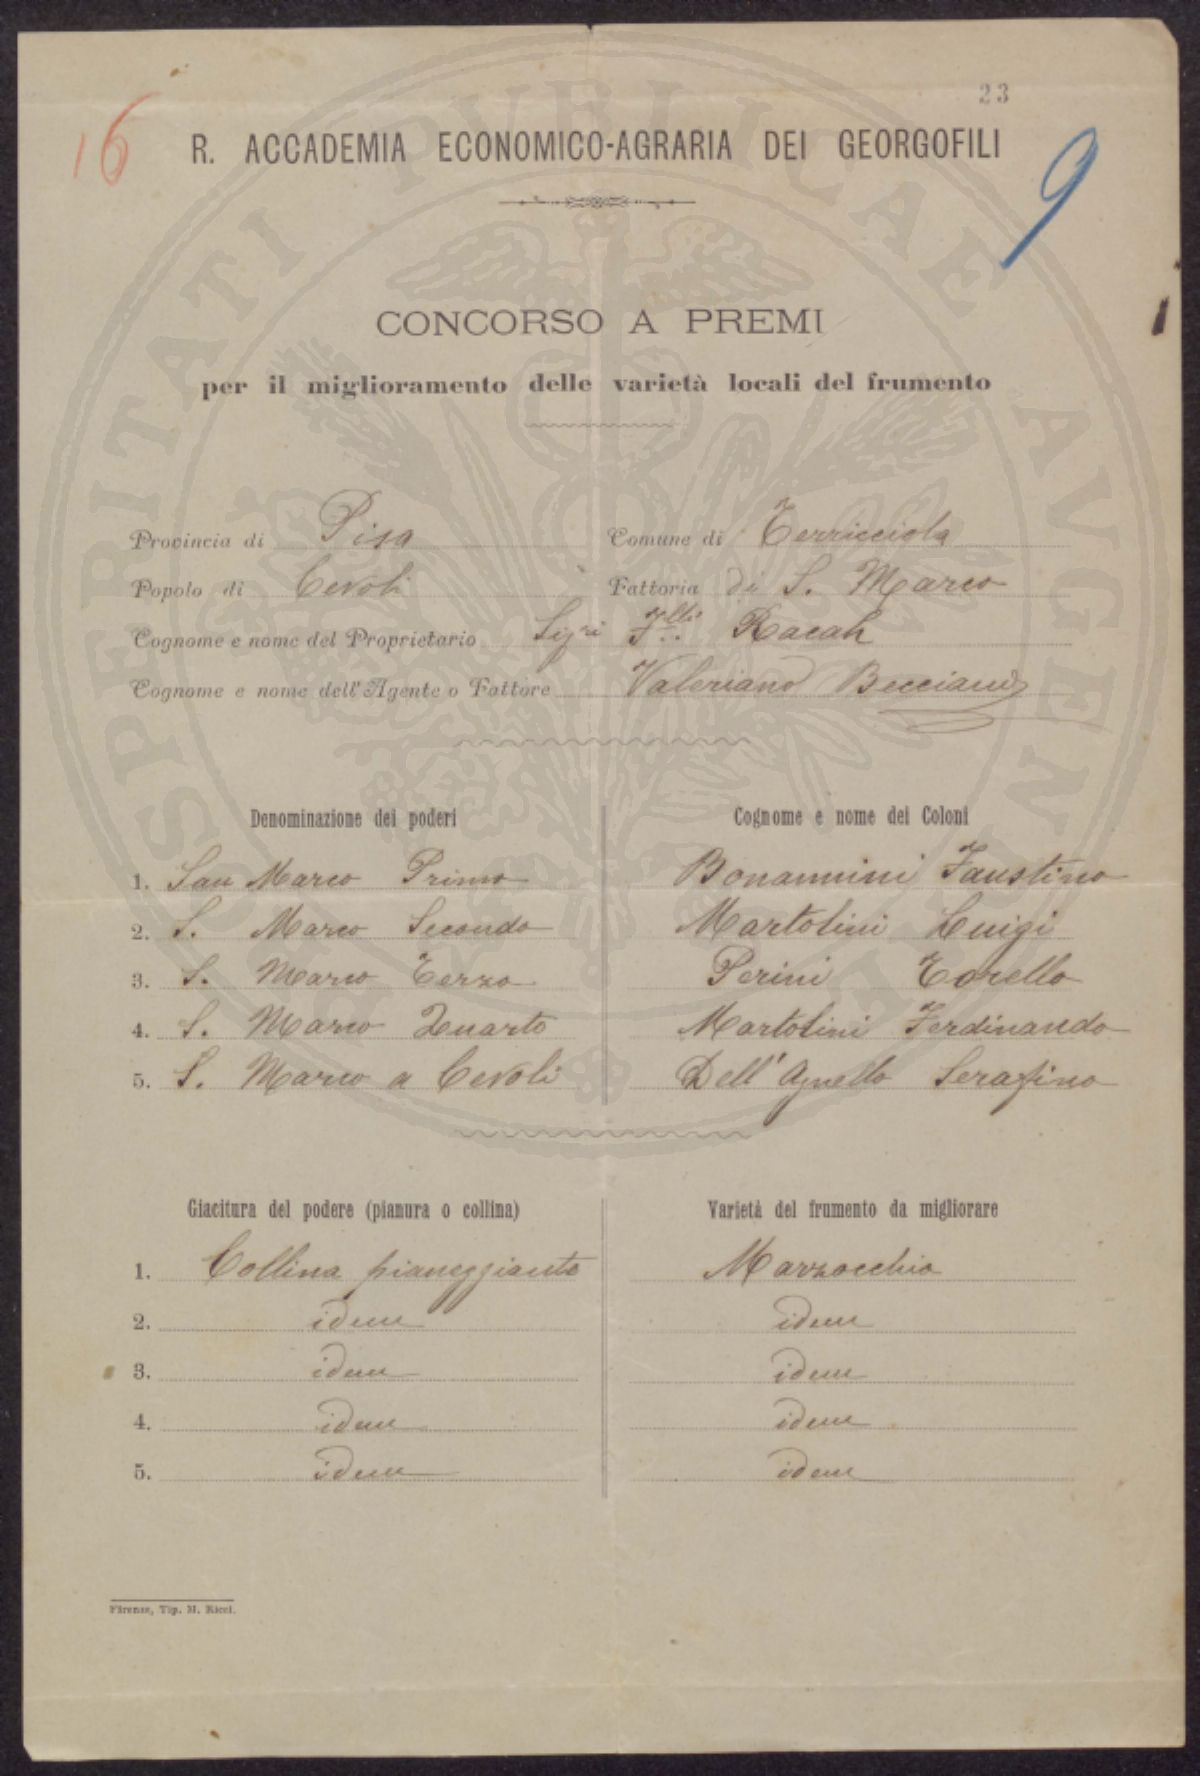 23
16
R. ACCADEMIA ECONOMICO-AGRARIA DEI GEORGOFILI
9
CONCORSO A PREMI
per il miglioramento delle varietà locali del frumento
Provincia di Pisa Comune di Terricciola
Popolo di Cevoli Fattoria di S. Marco
Cognome e nome del Proprietario Sigri Flli Racah
Cognome e nome dell'Agente o Fattore Valeriano Becciani
Denominazione dei poderi Cognome e nome dei Coloni
1. San Marco Primo Bonannini Faustino
2. S. Marco Secondo Martolini Luigi
3. S. Marco Terzo Perini Torello
4. S. Marco Quarto Martolini Ferdinando
5. S. Marco a Cevoli Dell'Agnello Serafino
Giacitura del podere (pianura o collina) Varietà del frumento da migliorare
1. Collina pianeggiante Marzocchio
2. idem idem
3. idem idem
4. idem idem
5. idem idem
Firenze, Tip. M. Ricci.
PROSPERITATI PUBLICAE AUGENDAE